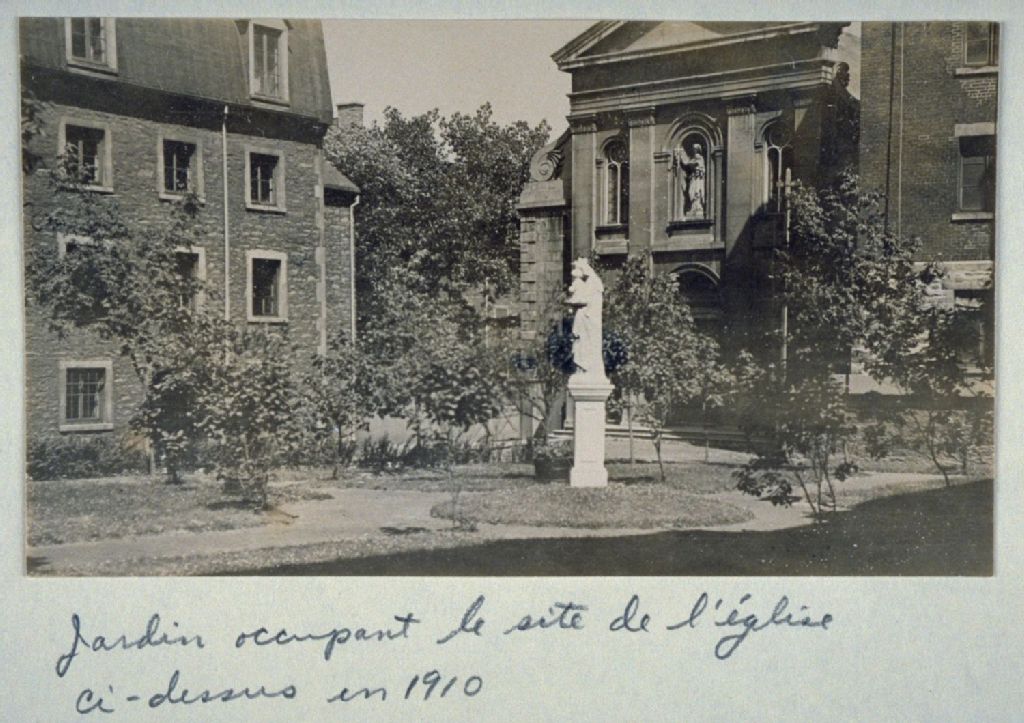 Jardin occupant le site de l'église
ci-dessus en 1910